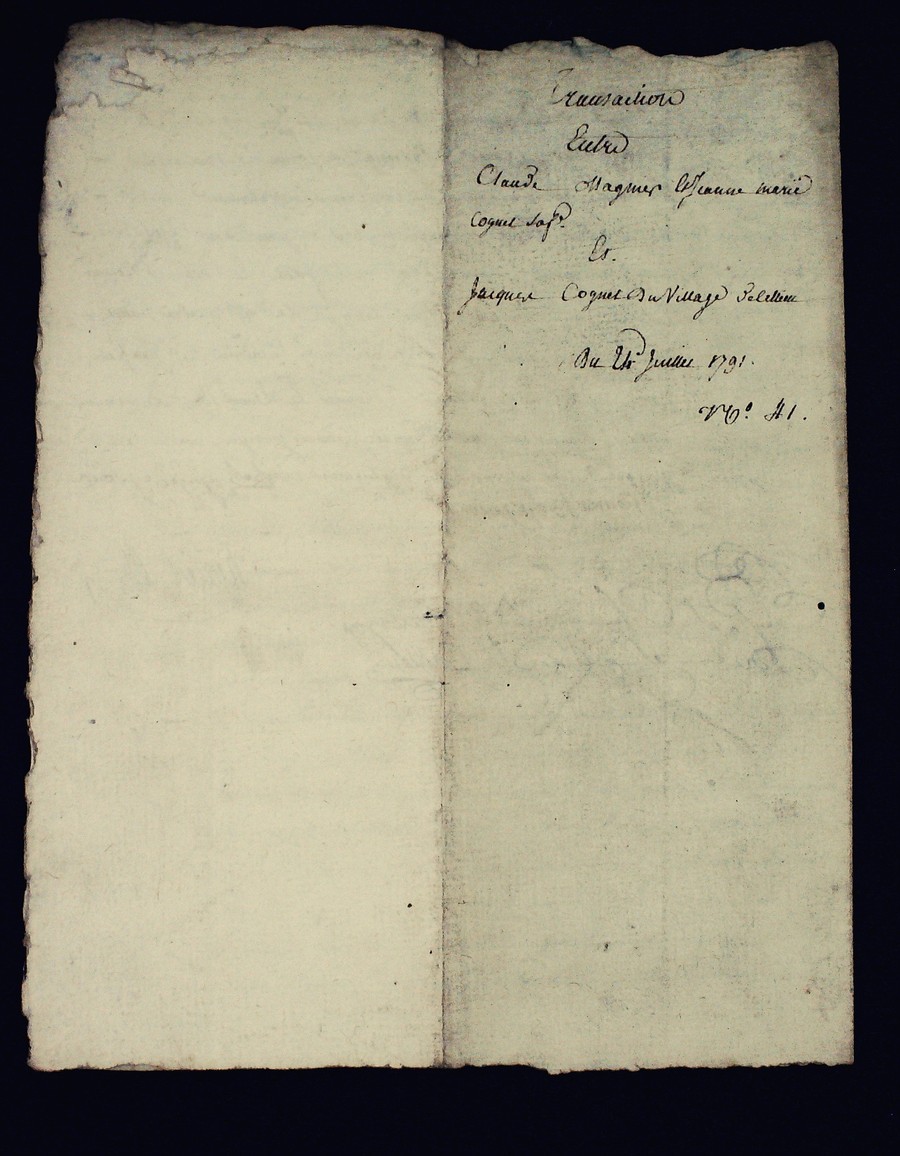 Transaction
Entre
Claude Magnier & Jeanne marie
Cognet sa fe.
Et.
Jacques Cognet Du Village
Du 24 Juillet 1791.
N°. 41.